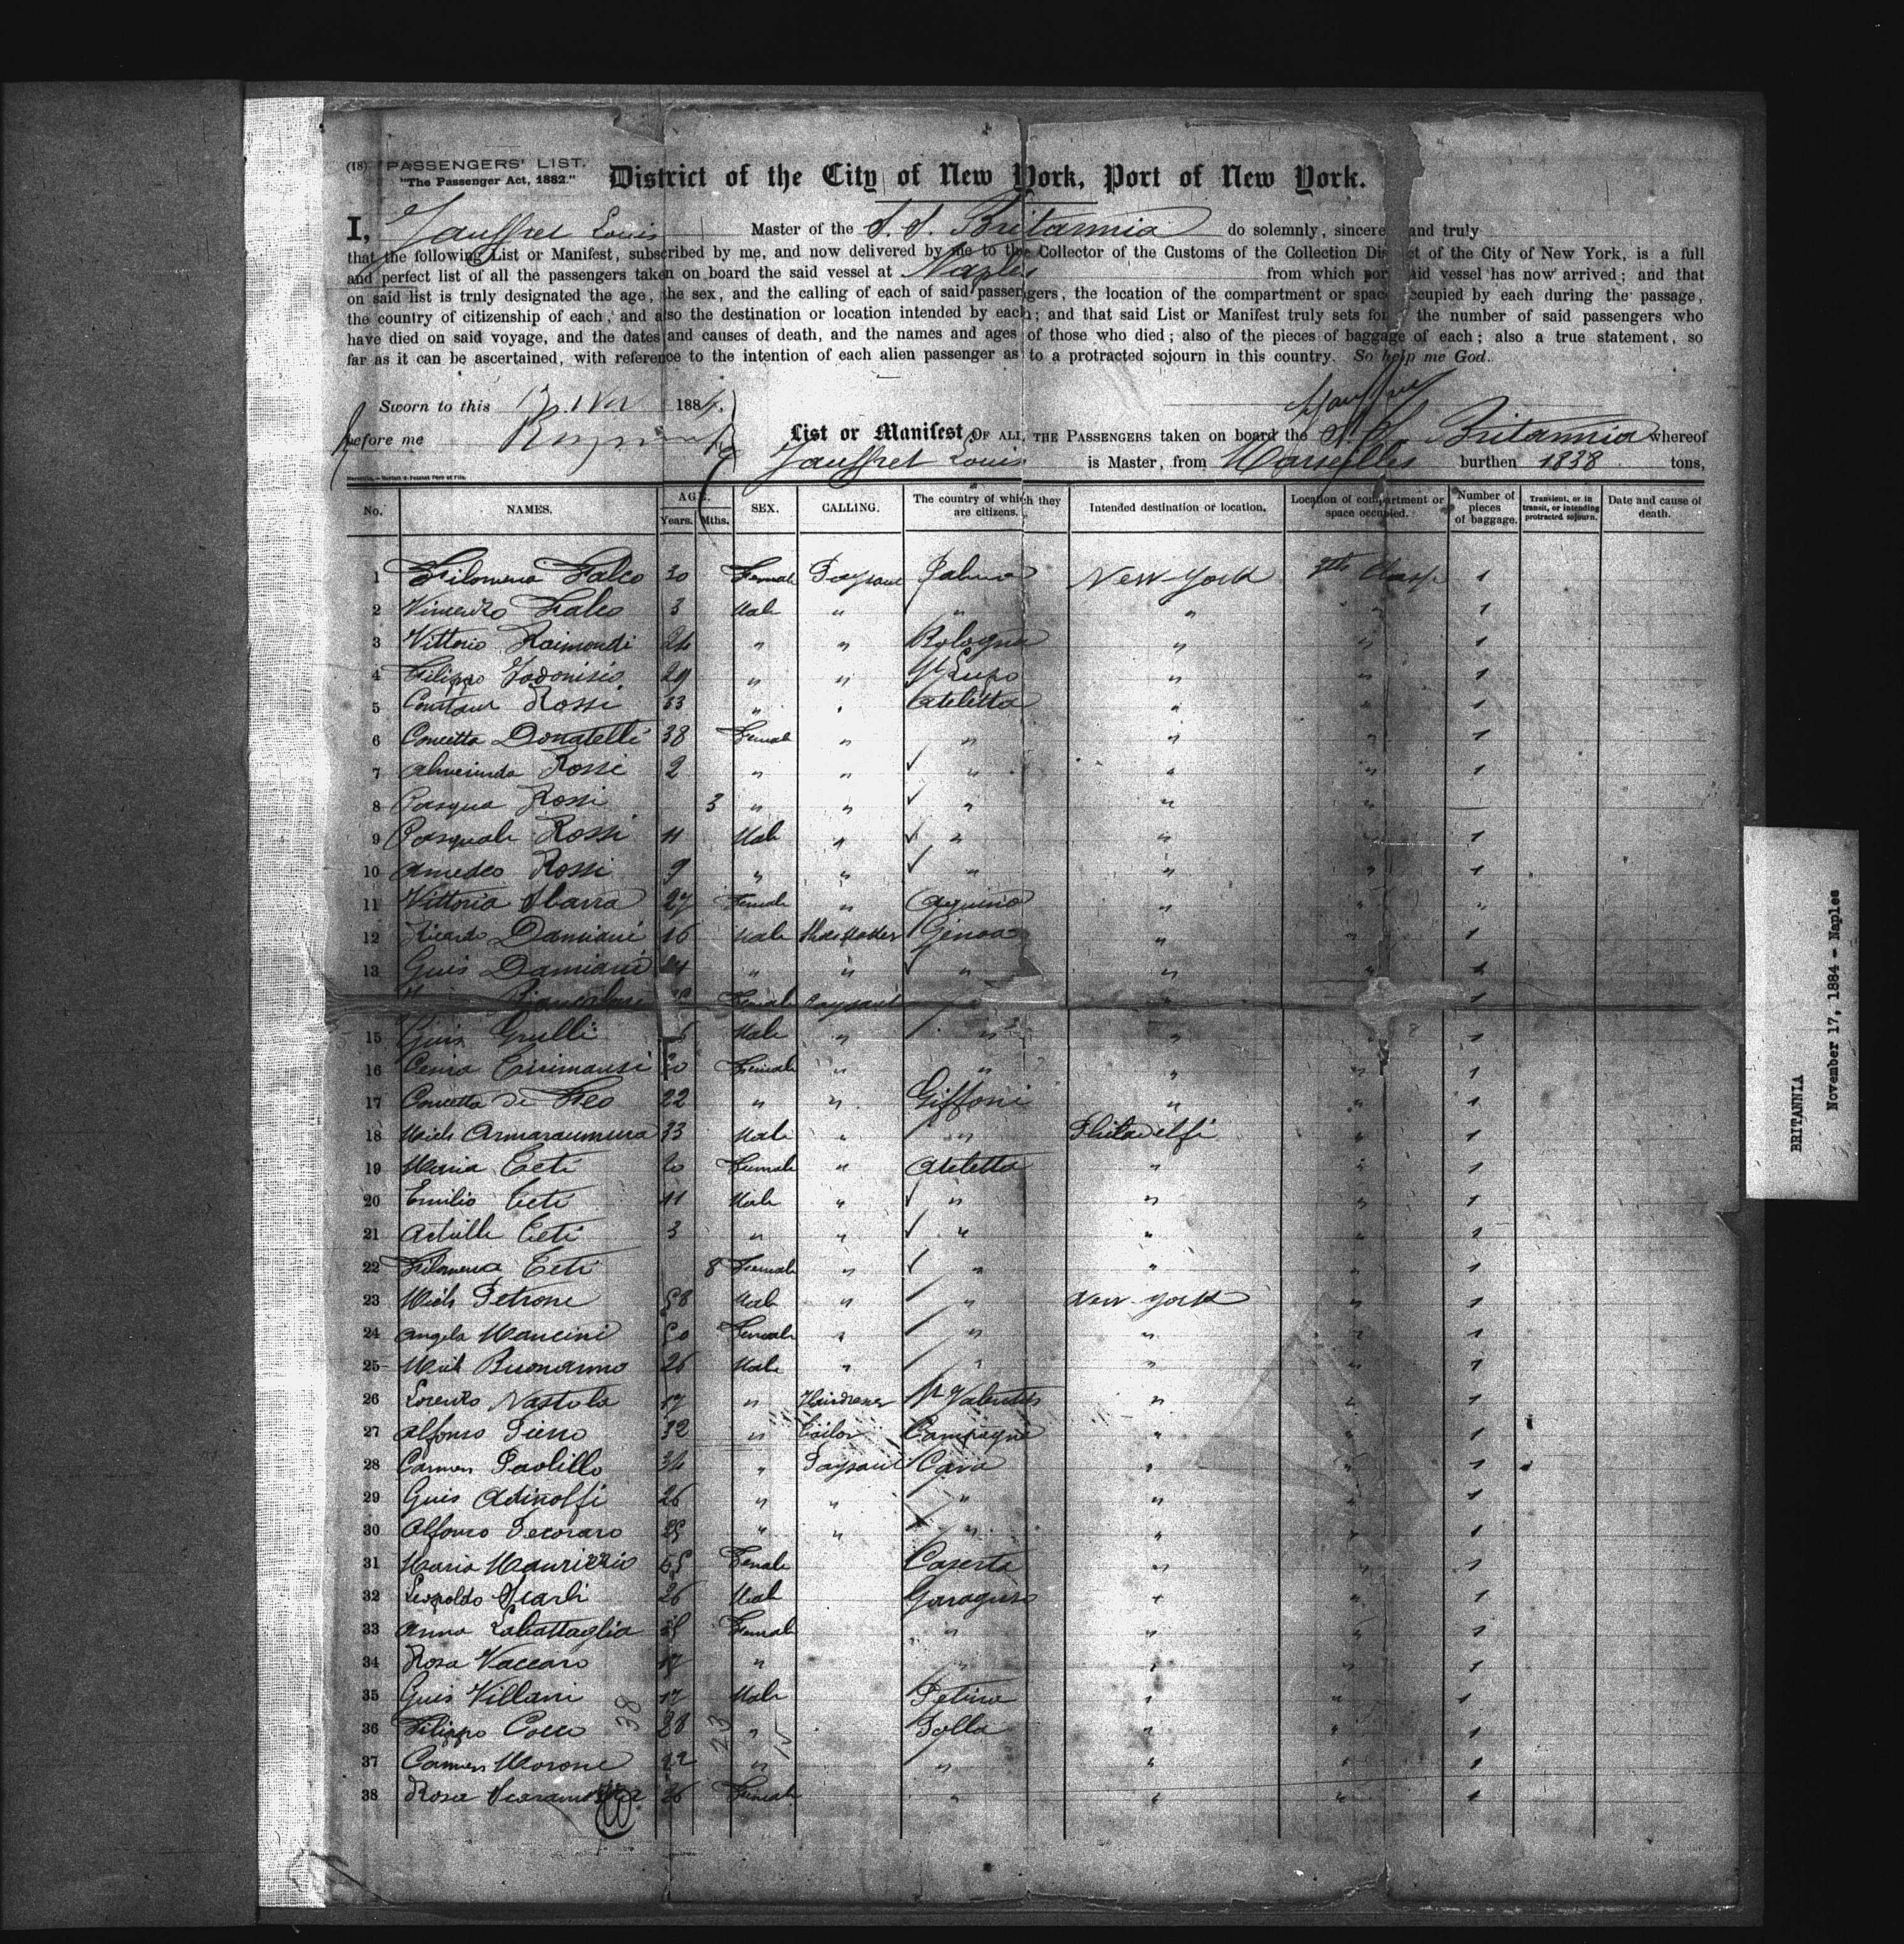 (18) PASSENGERS' LIST.
"The Passenger Act, 1882."
District of the City of New York, Port of New York.
I, Jauffret Louis Master of the S.S. Britannia do solemnly, sincere and truly
that the following List or Manifest, subscribed by me, and now delivered by me to the Collector of the Customs of the Collection Dis ct of the City of New York, is a full
and perfect list of all the passengers taken on board the said vessel at Naples from which por aid vessel has now arrived; and that
on said list is truly designated the age, the sex, and the calling of each of said passengers, the location of the compartment or spac ccupied by each during the passage,
the country of citizenship of each, and also the destination or location intended by each; and that said List or Manifest truly sets for the number of said passengers who
have died on said voyage, and the dates and causes of death, and the names and ages of those who died; also of the pieces of baggage of each; also a true statement, so
far as it can be ascertained, with reference to the intention of each alien passenger as to a protracted sojourn in this country. So help me God.
Jauffret
Sworn to this 17 Nov 1884.
before me
List or Manifest OF ALL THE PASSENGERS taken on board the S.S. Britannia whereof
Jauffret Louis is Master, from Marseilles burthen 1838 tons,
No. NAMES. AGE. Years. Mths. SEX. CALLING. The country of which they are citizens. Intended destination or location. Location of compartment or space occupied. Number of pieces of baggage. Transient, or in transit, or intending protracted sojourn. Date and cause of death.
1 Filomena Falco 30 Female Paysant Palma New-York Class 1
2 Vincenzo Falco 3 Male " " " " 1
3 Vittorio Raimondi 24 " " Bologna " " 1
4 Filippo Iodonisio 29 " " St Lupo " " 1
5 Rossi 33 " " Ateletta " " 1
6 Concetta Donatelli 38 Female " " " " 1
7 Almerinda Rossi 2 " " " " " 1
8 Pasqua Rossi 3 " " " " "
9 Pasquale Rossi 11 Male " " " " 1
10 Amedeo Rossi 9 " " " " " 1
11 Vittoria Sbarra 27 Female " Aquino " " "
12 Ricardo Damiani 16 Male Shoe Maker Genoa " " 1
13 Guis Damiani " " " " " 1
Female Paysant " " 1
15 Guis Grulli Male " " " " 1
16 20 Female " " " " 1
17 Concetta de Feo 22 " " Giffoni " " 1
18 Mich 33 Male " " Philadelfi " 1
19 Maria Ceti 20 Female " Ateletta " " 1
20 Emilio Ceti 11 Male " " " " 1
21 Achille Ceti 3 " " " " " 1
22 Filomena Ceti 8 Female " " " " 1
23 Mich Petrone 58 Male " " New-York " 1
24 Angela Mancini 50 Female " " " " 1
25 Mich Buonanno 26 Male " " " " 1
26 Lorenzo Nastola 17 " Hairdresser St Valentin " " 1
27 Alfonso Pierro 32 " Tailor Campagna " " 1
28 Carmen Paolillo 34 " Paysant Cava " " 1
29 Guis Adinolfi 26 " " " " " 1
30 Alfonso Pecoraro 25 " " " " " 1
31 Maria Maurizzio 65 Female Caserta " " 1
32 Leopoldo Scarli 26 Male Garaguso " " 1
33 Anna Labattaglia 38 Female " " " 1
34 Rosa Vaccaro 17 " " " " 1
35 Guis Villani 17 Male Petina " " 1
36 Filippo Cocco 28 " Polla " " 1
37 Carmen Morone 22 " " " " 1
38 Rosa 26 Female " " " 1
38
23
15
BRITANNIA
November 17, 1884 - Naples